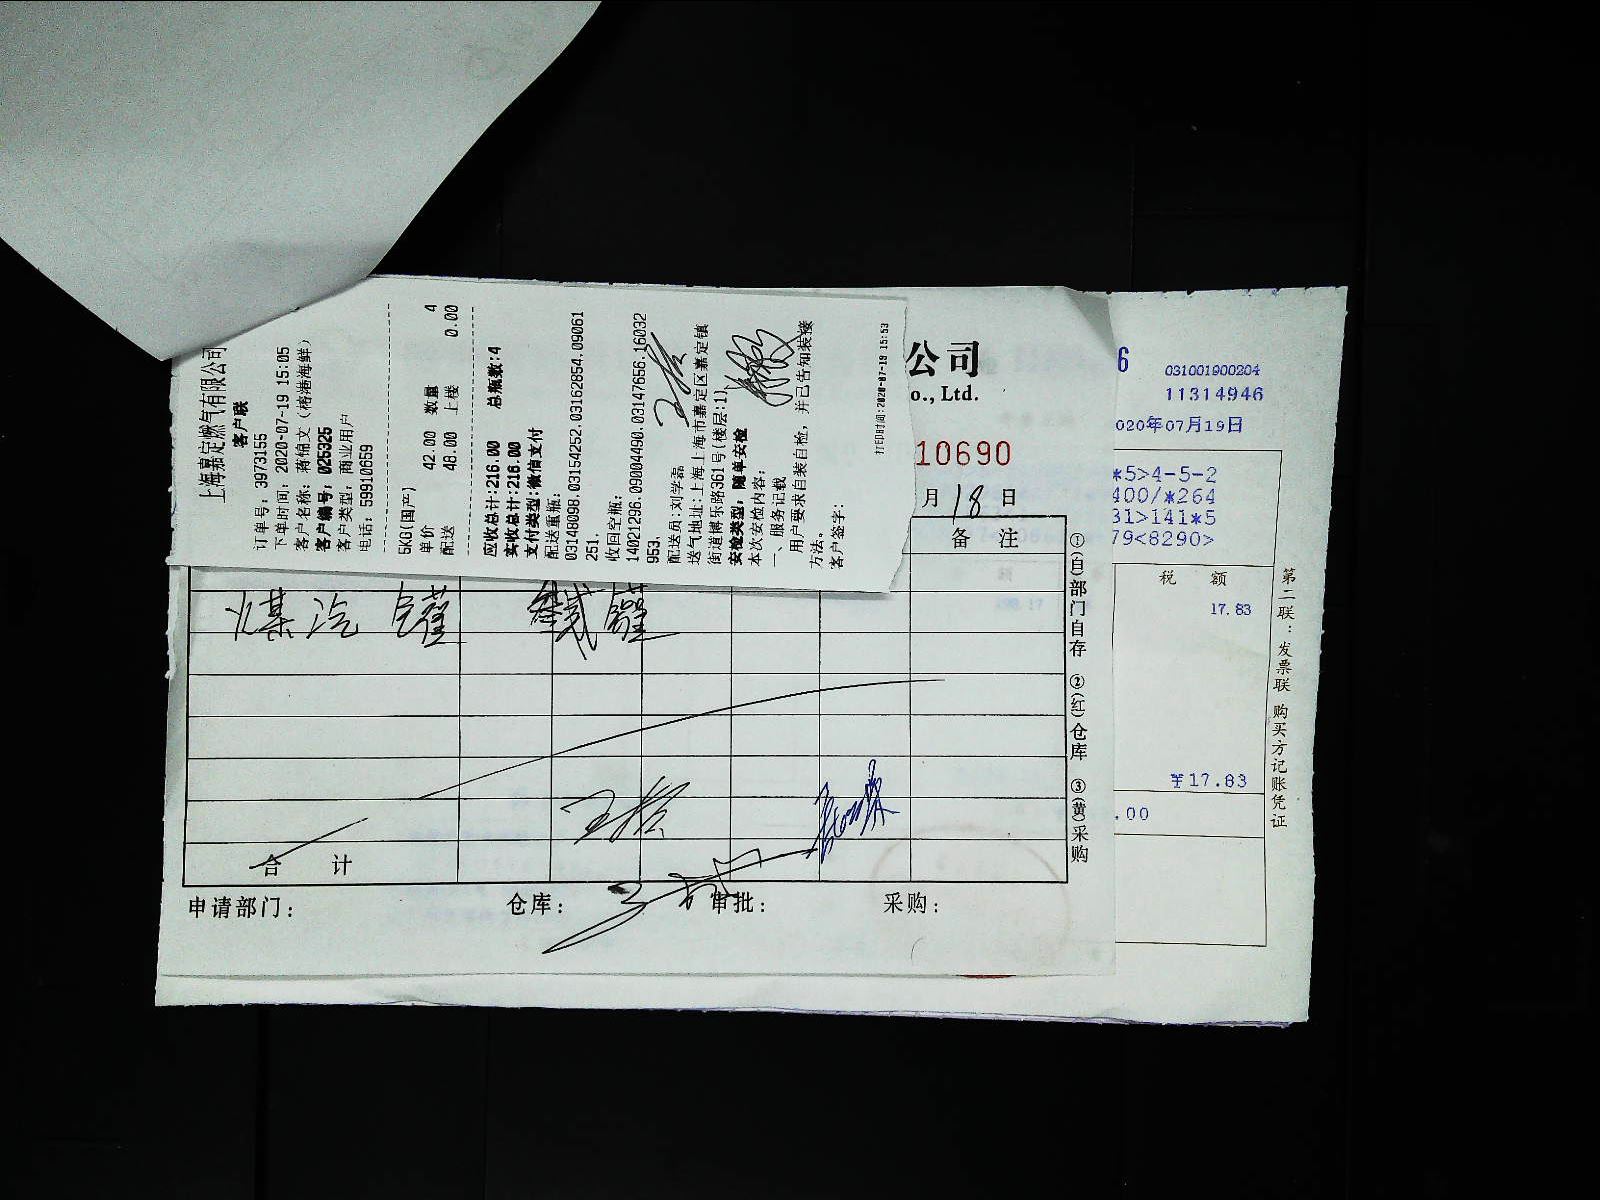 上海嘉定燃气有限公司
客户联
订单号：3973155
下单时间：2020-07-19 15:05
客户名称：蒋锦文（椿港海鲜）
客户编号：0253325
客户类型：商业用户
电话：59910659
5KG(国产)
单价 42.00 数量 4
配送 48.00 上楼 0.00
应收总计:216.00 总瓶数:4
实收总计:216.00
支付类型:微信支付
配送重瓶:
03148098.03154252.03162854.09061
251.
收回空瓶:
14021296.09004490.03147656.16032
953.
配送员:刘学磊
送气地址:上海上海市嘉定区嘉定镇
街道博乐路361号(楼层:1)
安检类型：随单安检
本次安检内容:
一、服务记载
用户要求自装自检，并已告知装接
方法。
客户签字:
打印时间:2020-07-19 15:53
公司
o., Ltd.
10690
月 18 日
备 注
煤汽 罐
合 计
申请部门：
仓库：
审批：
采购：
①(白)部门自存 ②(红)仓库 ③(黄)采购
6
031001900204
11314946
020年07月19日
*5>4-5-2
400/*264
31>141*5
79<8290>
税 额
17.83
￥17.83
.00
第二联：发票联 购买方记账凭证